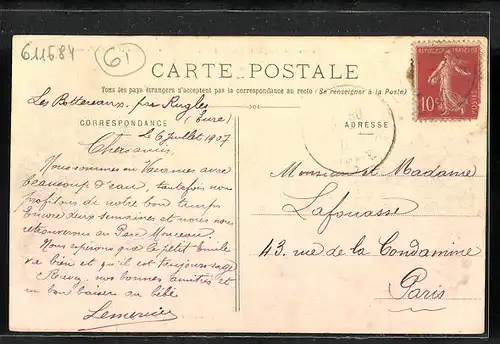 611684
61
CARTE POSTALE
Tous les pays étrangers n'acceptent pas la correspondance au recto (Se renseigner à la Poste)
REPUBLIQUE FRANÇAISE
10
POSTES
Les Bottereaux, par Rugles
(Eure)
CORRESPONDANCE
Le 6 juillet 1907
Chers amis
Nous sommes en vacances avec
beaucoup d'eau, toutefois nous
profitons de notre bon temps
Encore deux semaines et nous nous
retrouverons au Parc Monceau.
Nous espérons que le petit Emile
va bien et qu'il est toujours sage
nos bonnes amitiés et
un bon baiser au bébé
Lemercier
ADRESSE
Monsieur et Madame
Lafouasse
43 rue de la Condamine
Paris